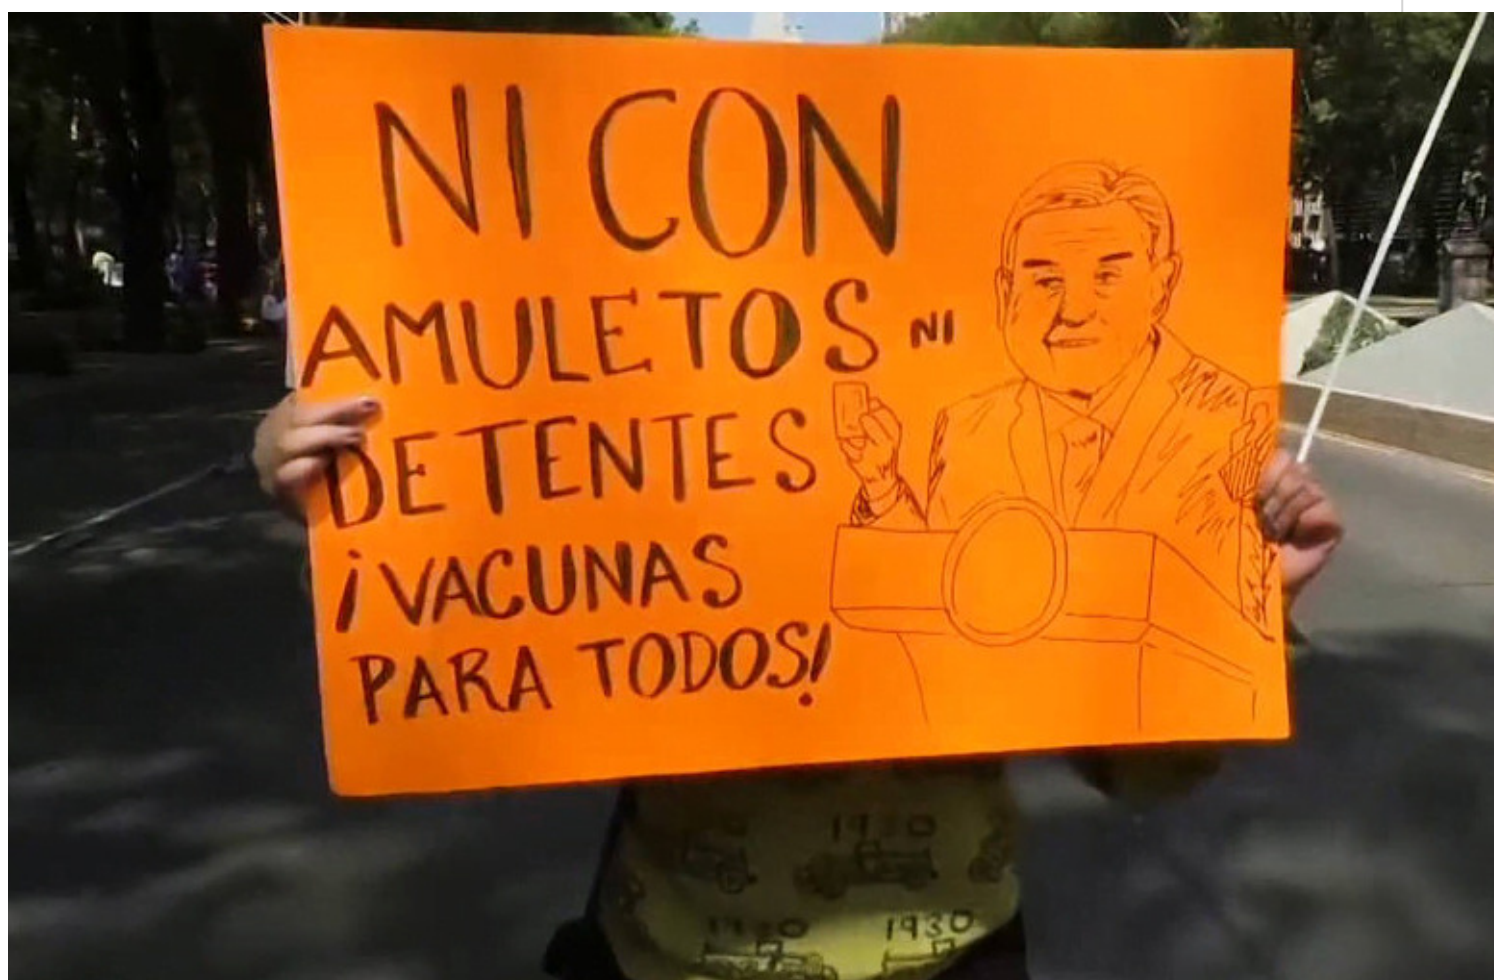 NI CON
AMULETOS NI
DETENTES
¡VACUNAS
PARA TODOS!
1930
1930